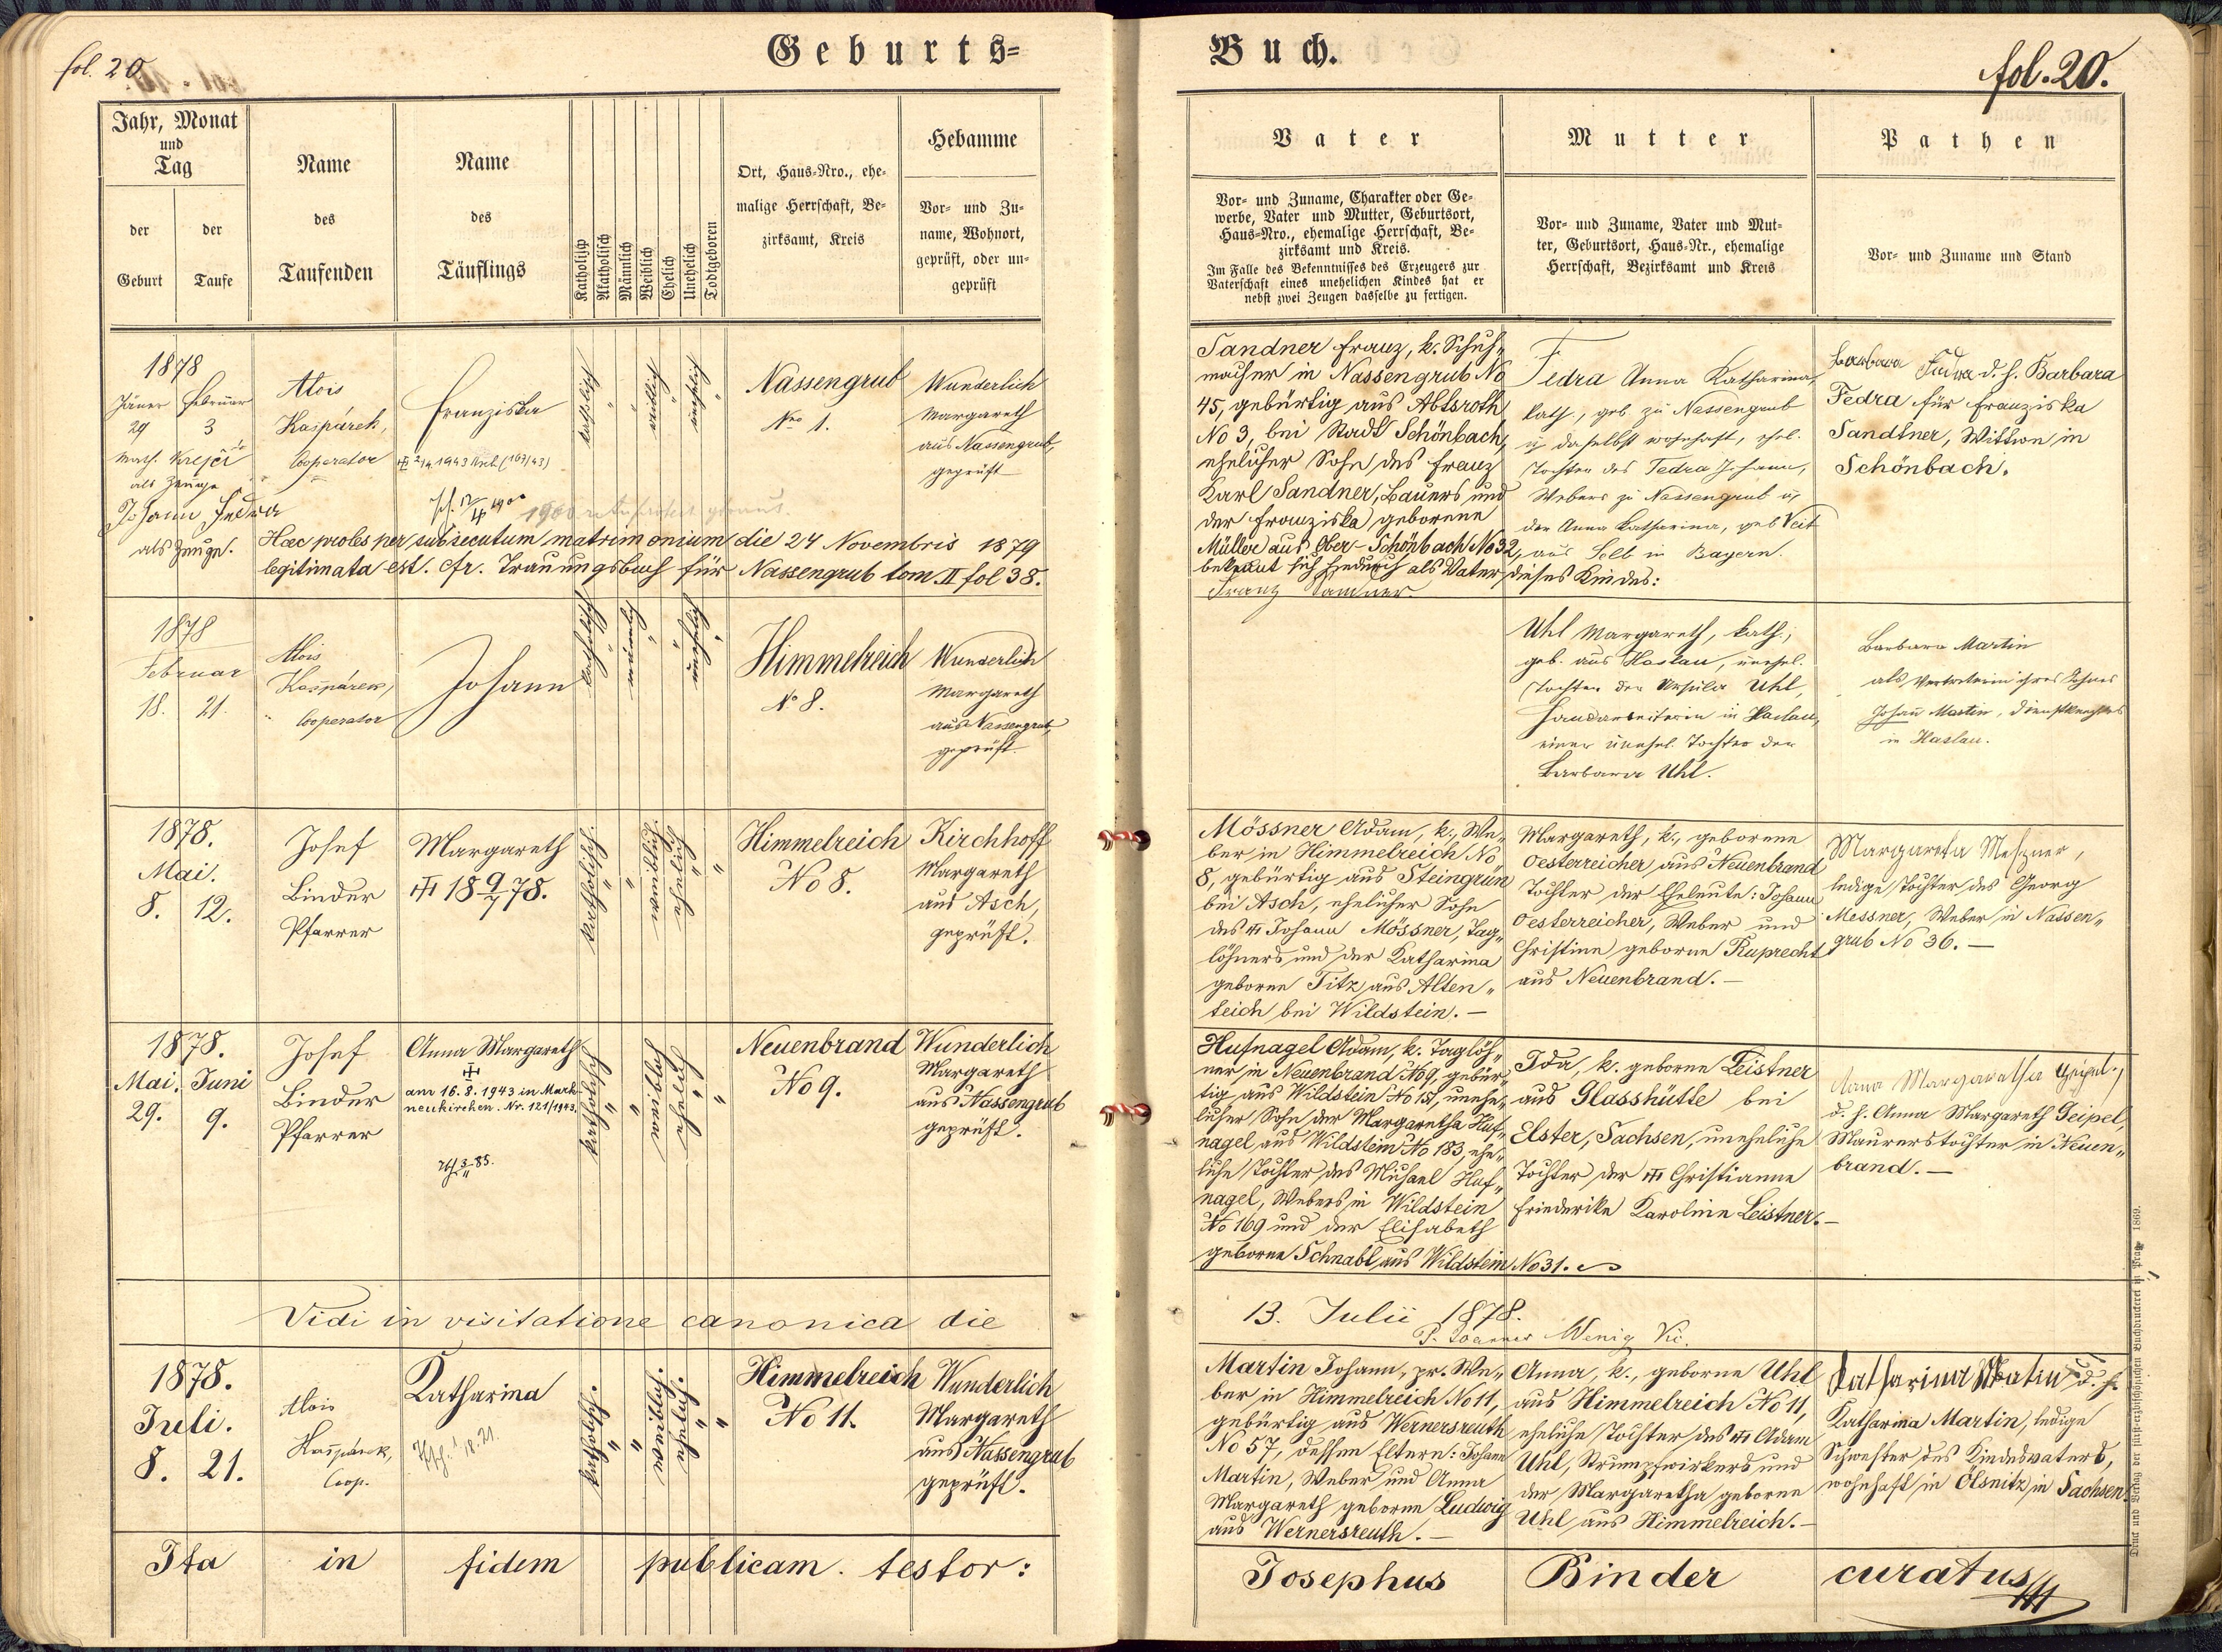 fol. 20
Geburts=
Buch.
fol. 20.
Jahr, Monat
und
Tag
der
Geburt
der
Taufe
Name
des
Taufenden
Name
des
Täuflings
Katholisch
Akatholisch
Männlich
Weiblich
Ehelich
Unehelich
Todtgeboren
Ort, Haus=Nro., ehe=
malige Herrschaft, Be=
zirksamt, Kreis
Hebamme
Vor= und Zu=
name, Wohnort,
geprüft, oder un=
geprüft
Vater
Vor= und Zuname, Charakter oder Ge=
werbe, Vater und Mutter, Geburtsort,
Haus=Nro., ehemalige Herrschaft, Be=
zirksamt und Kreis.
Im Falle des Bekenntnisses des Erzeugers zur
Vaterschaft eines unehelichen Kindes hat er
nebst zwei Zeugen dasselbe zu fertigen.
Mutter
Vor= und Zuname, Vater und Mut=
ter, Geburtsort, Haus=Nr., ehemalige
Herrschaft, Bezirksamt und Kreis
Pathen
Vor= und Zuname und Stand
1878
Jäner Februar
29 3
Math. Krejči
als Zeuge
Johann Fedra
als Zeuge.
Alois
Kaspárek,
Cooperator
Franziska
1943
katholisch
"
weiblich
"
unehelich
"
Nassengrub
Nro 1.
Wunderlich
Margareth
aus Nassengrub,
geprüft
Hæc proles per subsecutum matrimonium die 24 Novembris 1879
legitimata est. cfr. Trauungsbuch für Nassengrub tom. II fol 38.
Sandner Franz, k. Schuh„
macher in Nassengrub No
45, gebürtig aus Abtsroth
No 3, bei Stadt Schönbach,
ehelicher Sohn des Franz
Karl Sandner, Bauers und
der Franziska geborene
Müller aus Ober-Schönbach No 32,
bekennt sich hiedurch als Vater dieses Kindes:
Franz Sandner
Fedra Anna Katharina,
kath., geb. zu Nassengrub
u. daselbst wohnhaft, ehel.
Tochter des Fedra Johann,
Webers zu Nassengrub u.
der Anna Katharina, geb Veit
aus Selb in Bayern.
Barbara Fedra d. h. Barbara
Fedra für Franziska
Sandtner, Wittwe in
Schönbach.
1878
Februar
18. 21.
Alois
Kaspárek,
Cooperator
Johann
katholisch
"
männlich
"
"
unehelich
"
Himmelreich
No 8.
Wunderlich
Margareth
aus Nassengrub,
geprüft.
Uhl Margareth, kath.,
geb. aus Haslau, unehel.
Tochter der Ursula Uhl,
Handarbeiterin in Haslau,
einer unehel. Tochter der
Barbara Uhl.
Barbara Martin
als Vertreterin ihres Sohnes
Johann Martin, Dienstknechtes
in Haslau.
1878.
Mai.
8. 12.
Josef
Binder
Pfarrer
Margareth
18 9/7 78.
katholisch.
"
"
weiblich.
ehelich.
"
"
Himmelreich
No 8.
Kirchhoff
Margareth
aus Asch,
geprüft.
Mössner Adam, k., We„
ber in Himmelreich No
8, gebürtig aus Steingrün
bei Asch, ehelicher Sohn
des Johann Mössner, Tag„
löhners und der Katharina
geborne Titz aus Alten„
teich bei Wildstein.—
Margareth, k., geborene
Oesterreicher aus Neuenbrand
Tochter der Eheleute: Johann
Oesterreicher, Weber und
Christine geborne Ruprecht
aus Neuenbrand.—
Margareta Meßner,
ledige Tochter des Georg
Messner, Weber in Nassen„
grub No 36.—
1878.
Mai. Juni
29. 9.
Josef
Binder
Pfarrer
Anna Margareth
am 16. 8. 1943 in Mark-
neukirchen. Nr. 121/1943.
katholisch
"
"
weiblich
ehelich
"
"
Neuenbrand
No 9.
Wunderlich
Margareth
aus Nassengrub
geprüft.
Hufnagel Adam, k. Taglöh„
ner in Neuenbrand No 9, gebür„
tig aus Wildstein No 151, unehe„
licher Sohn der Margaretha Huf„
nagel aus Wildstein No 183, ehe„
liche Tochter des Michael Huf„
nagel, Webers in Wildstein
No 169 und der Elisabeth
geborne Schnabl aus Wildstein No 31.
Ida, k. geborne Leistner
aus Glasshütte bei
Elster, Sachsen, uneheliche
Tochter der Christianne
Friederike Karoline Leistner.—
Anna Margaretha Geipel,
d. h. Anna Margareth Geipel,
Maurerstochter in Neuen„
brand.—
Vidi in visitatione canonica die
13. Julii 1878.
P. Joannes Wenig Vic.
1878.
Juli.
8. 21.
Alois
Kaspárek,
Coop.
Katharina
katholisch.
"
"
weiblich.
ehelich.
"
"
Himmelreich
No 11.
Wunderlich
Margareth
aus Nassengrub
geprüft.
Martin Johann, pr. We„
ber in Himmelreich No 11,
gebürtig aus Wernersreuth
No 57, dessen Eltern: Johann
Martin, Weber und Anna
Margareth geborne Ludwig
aus Wernersreuth.—
Anna, k., geborne Uhl
aus Himmelreich No 11,
eheliche Tochter des Adam
Uhl, Strumpfwirkers und
der Margaretha geborne
Uhl aus Himmelreich.—
Katharina Matin d. h.
Katharina Martin, ledige
Schwester des Kindesvaters,
wohnhaft in Ölsnitz in Sachsen.
Ita in fidem publicam testor:
Josephus Binder curatus
Druck und Verlag der fürst-erzbischöflichen Buchdruckerei in Prag. 1869.